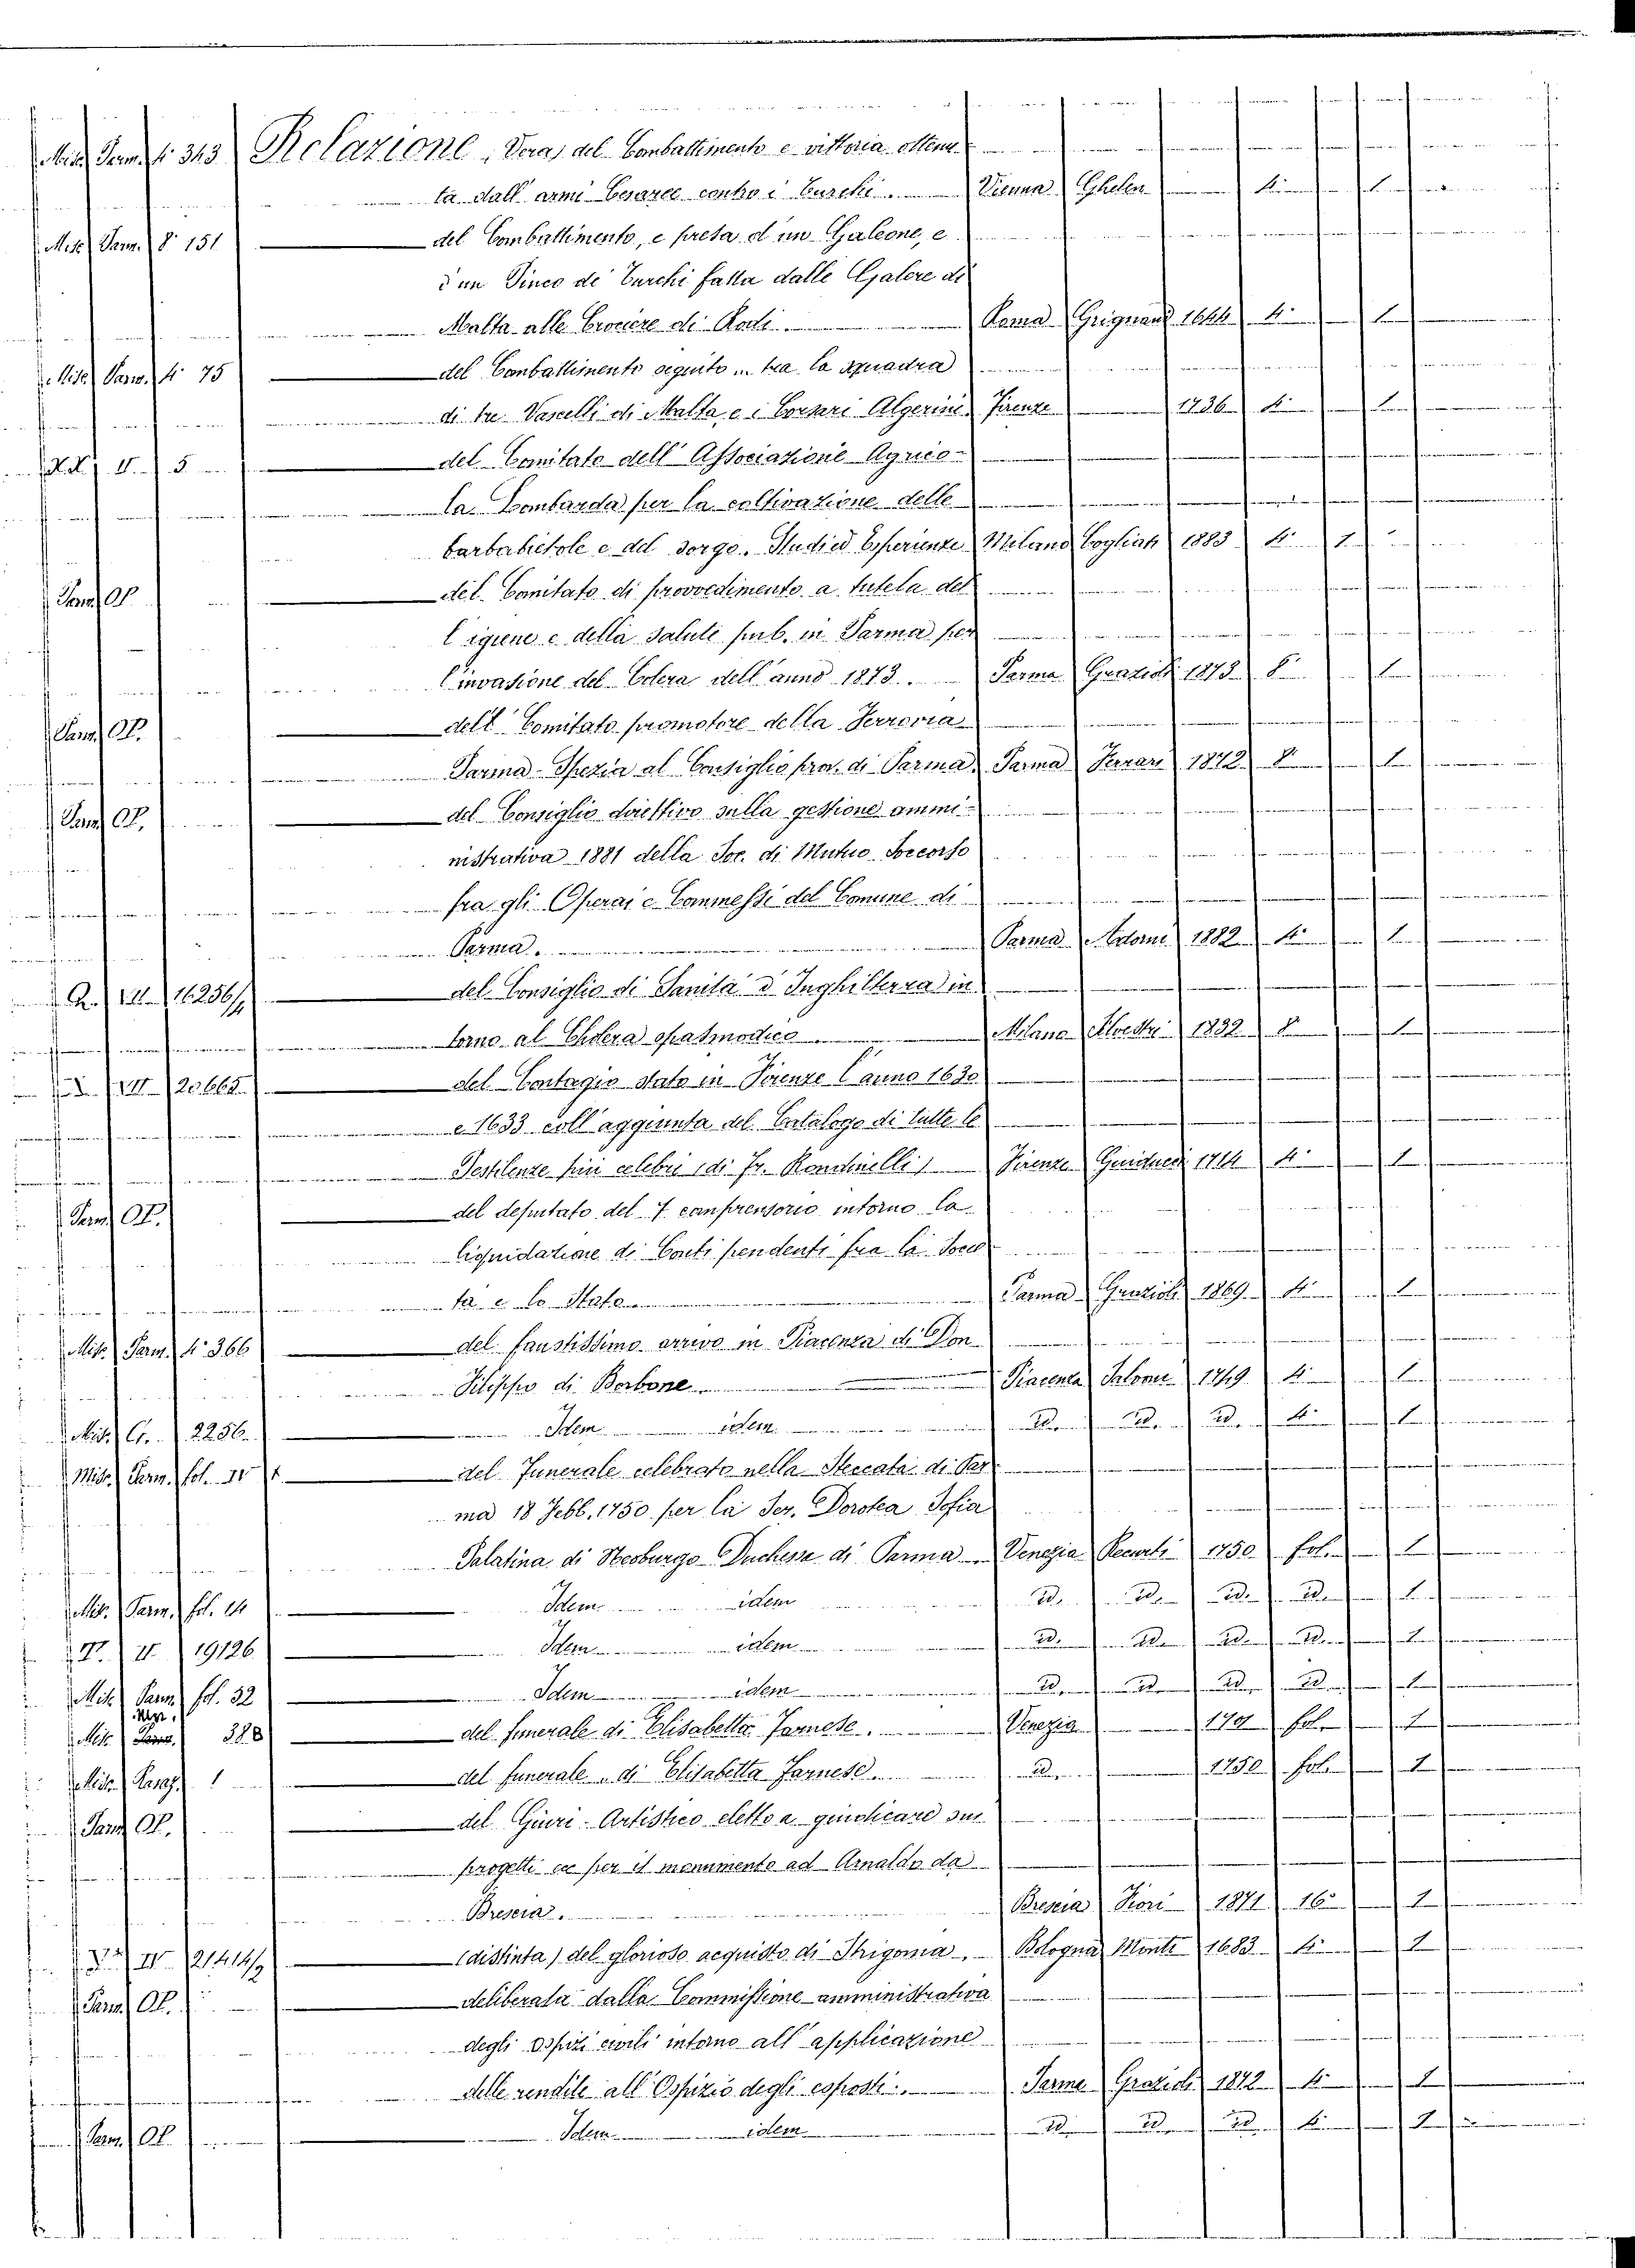 Misc. Parm. 4° 343 Relazione, Vera, del Combattimento e vittoria ottenu-
ta dall' armi Cesaree contro i Turchi. Vienna Ghelen 4° 1
Misc. Parm. 8° 151 — del Combattimento, e presa d'un Galeone, e
d'un Pinco de Turchi fatta dalle Galere di
Malta alle Crociere di Rodi. Roma Grignani 1644 4° 1
Misc. Parm. 4° 75 — del Combattimento seguito ... tra la squadra
di tre Vascelli di Malta, e i Corsari Algerini Firenze 1736 4° 1
II 5 — del Comitato dell' Associazione Agrico-
la Lombarda per la coltivazione delle
barbabietole e del sorgo. Studi ed Esperienze Milano Cogliati 1883 4° 1
Parm. OP. — del Comitato di provvedimento a tutela del
l'igiene e della salute pub. in Parma per
l'invasione del Colera dell' anno 1873. Parma Grazioli 1873 8° 1
Parm. OP. — dell Comitato promotore della Ferrovia
Parma-Spezia al Consiglio prov. di Parma Parma Ferrari 1872 8° 1
Parm. OP. — del Consiglio direttivo sulla gestione ammi-
nistrativa 1881 della Soc. di Mutuo Soccorso
fra gli Operai e Commessi del Comune di
Parma. Parma Adorni 1882 4° 1
Q. VII 16256/4 — del Consiglio di Sanità d'Inghilterra in
torno al Cholera spasmodico Milano Silvestri 1832 8° 1
VII 20665 — del Contagio stato in Firenze l'anno 1630
e 1633 coll' aggiunta del Catalogo di tutte le
Pestilenze più celebri (di Fr. Rondinelli) Firenze Guiducci 1714 4° 1
Parm. OP. — del deputato del 7. comprensorio intorno la
liquidazione di Conti pendenti fra la Socie
tà e lo Stato Parma Grazioli 1869 4° 1
Misc. Parm. 4° 366 — del faustissimo arrivo in Piacenza di Don
Filippo di Borbone Piacenza Saloni 1749 4° 1
Misc. Er. 2256. — Idem idem id. id. id. 4° 1
Misc. Parm. fol. IV 1 — del Funerale celebrato nella Steccata di Par
ma 18 Febb. 1750 per la Ser. Dorotea Sofia
Palatina di Neoburgo Duchessa di Parma Venezia Recurti 1750 fol. 1
Misc. Parm. fol. 14 — Idem idem id. id. id. id. 1
II 19126 — Idem idem id. id. id. id. 1
Misc. Parm. fol. 32 — Idem idem id. id. id. id. 1
Misc. 388 — del funerale di Elisabetta Farnese. Venezia fol. 1
Misc. 1 — del funerale .. di Elisabetta Farnese. id. 1750 fol. 1
Parm. OP. — del Giurì-Artistico eletto a giudicare sui
progetti ec per il monumento ad Arnaldo da
Brescia. Brescia Fiori 1871 16° 1
IV 21414/2 — (distinta) del glorioso acquisto di Strigonia, Bologna Monti 1683 4° 1
Parm. OP. — deliberata dalla Commissione amministrativa
degli ospizi civili intorno all' applicazione
delle rendite all' Ospizio degli esposti. Parma Grazioli 1872 4° 1
Parm. OP. — Idem idem id. id. id. 4° 1